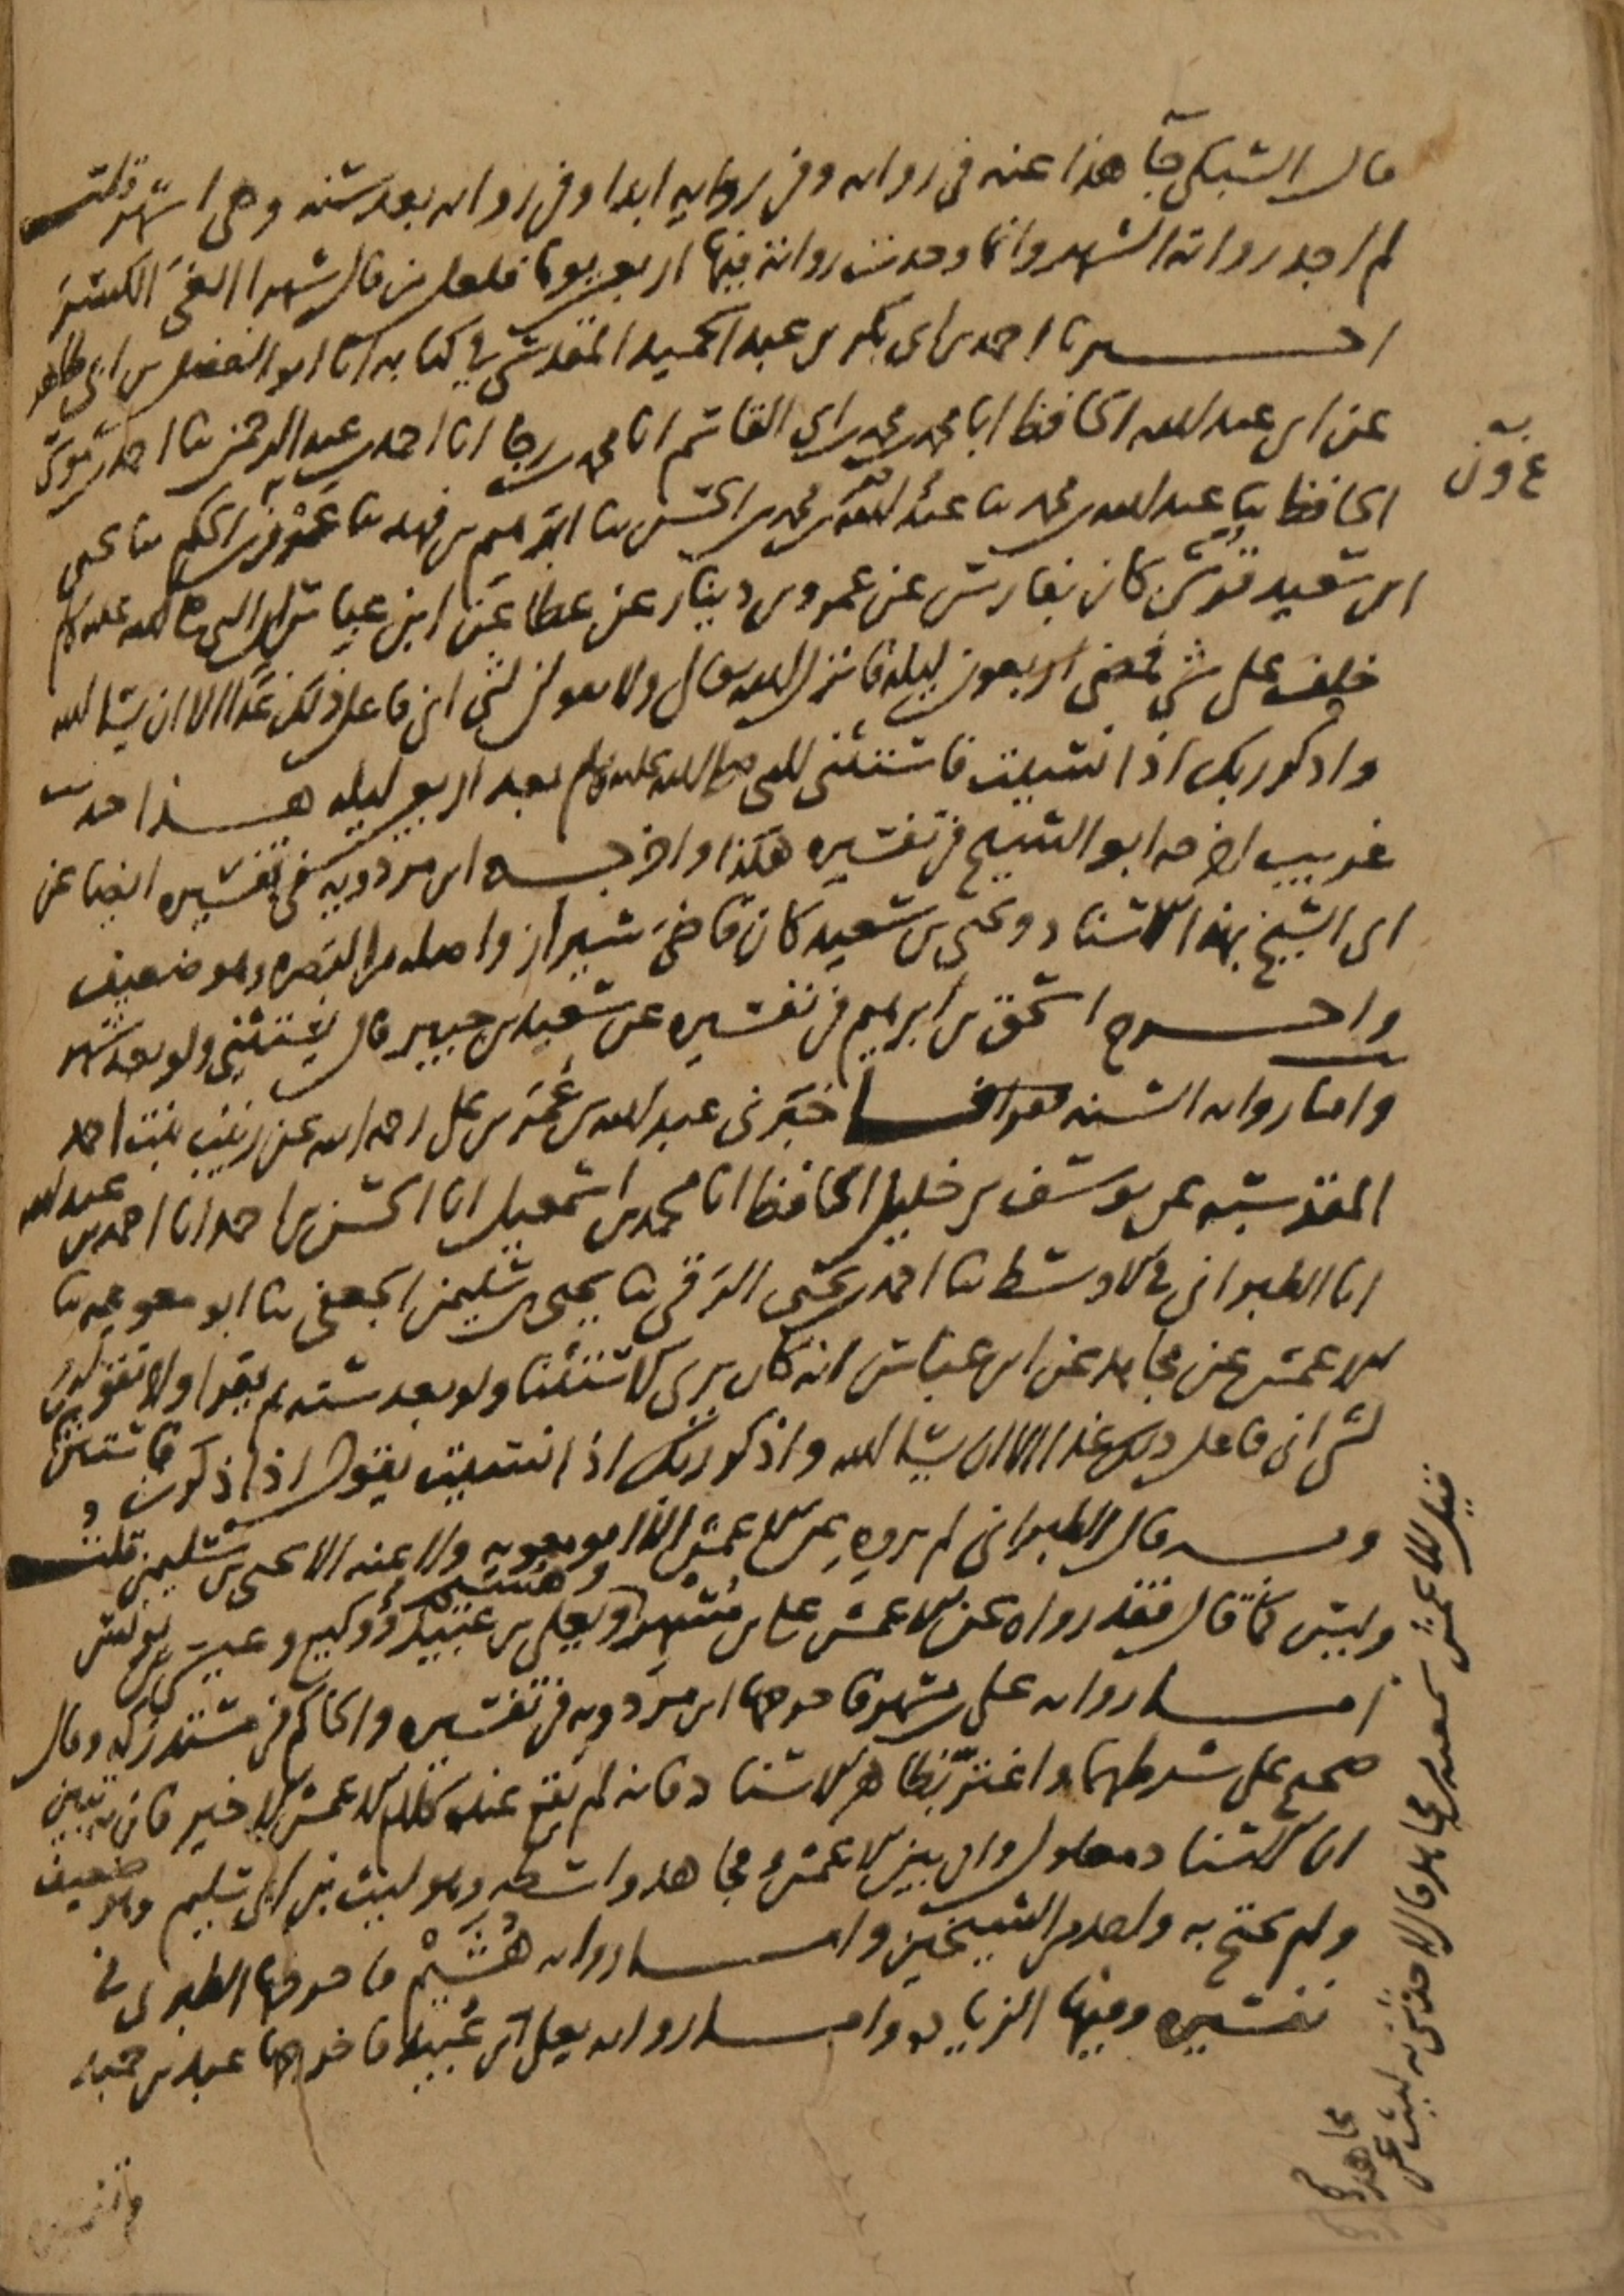 قال السبكي جا هذا عنه في رواية وفي رواية ابدا وفي رواية بعد سنه وهي اشهر قلت
لم اجد رواية الشهر وانما وجدت رواية فيها اربعين يوما فلعل من قال شهرا الغى الكسر
اخبرنا احمد بن ابي بكر بن عبد الحميد المقدسي في كتابه انا ابو الفضل بن ابي طاهر
عن ابي عبد الله الحافظ انا محمد بن محمد بن ابي القاسم انا محمد بن رجا انا احمد بن عبد الرحمن ثنا احمد بن موسى
الحافظ ثنا عبد الله بن محمد ثنا عبد الله بن محمد بن الحسن ثنا ابرهيم بن فهد ثنا عمرو بن الحكم ثنا يحيى
ابن سعيد قرشي كان بفارس عن عمرو بن دينار عن عطا عن ابن عباس ان النبي صلى الله عليه وسلم
حلف على شي فمضى اربعون ليلة فانزل الله تعالى ولا تقولن لشي اني فاعل ذلك غدا الا ان يشا الله
واذكر ربك اذا نسيت فاستثنى النبي صلى الله عليه وسلم بعد اربعين ليلة هذا حديث
غريب اخرجه ابو الشيخ في تفسيره هكذا واخرجه ابن مردويه في تفسيره ايضا عن
ابي الشيخ بهذا الاسناد ويحيى بن سعيد كان قاضي شيراز واصله من البصره وهو ضعيف
واخرج اسحق بن ابرهيم في تفسيره عن سعيد بن جبير قال يستثني ولو بعد شهر
واما رواية السنه فاخبرني عبد الله بن عمر بن علي رحمه الله عن زينب بنت احمد
المقدسيه عن يوسف بن خليل الحافظ انا محمد بن اسمعيل انا الحسن بن احمد انا احمد بن عبد الله
انا الطبراني في الاوسط ثنا احمد بن يحيى الرقي ثنا يحيى بن سليمن الجعفي ثنا ابو معويه ثنا
الاعمش عن مجاهد عن ابن عباس انه كان يرى الاستثنا ولو بعد سنه ثم يقرا ولا تقولن
لشي اني فاعل ذلك غدا الا ان يشا الله واذكر ربك اذا نسيت يقول اذا ذكرت فاستثن
وبه قال الطبراني لم يروه عن الاعمش الا ابو معويه ولا عنه الا يحيى بن سليمن قلت
وليس كما قال فقد رواه عن الاعمش علي بن مسهر وهشيم ويعلى بن عبيد ووكيع وعيسى بن يونس
اما رواية علي بن مسهر فاخرجها ابن مردويه في تفسيره والحاكم في مستدركه وقال
صحيح على شرطهما واغتر بظاهر الاسناد فانه لم يقع عنده كلام الاعمش الاخير فانه تبين
ان الاسناد معلول وان بين الاعمش ومجاهد واسطه وهو ليث بن ابي سليم وهو ضعيف
ولم يحتج به واحد من الشيخين واما رواية هشيم فاخرجها الطبري في
تفسيره وفيها الزيادة واما رواية يعلى بن عبيد فاخرجها عبد بن حميد
قيل للاعمش سمعته من مجاهد قال لا حدثني به ليث عن
مجاهد